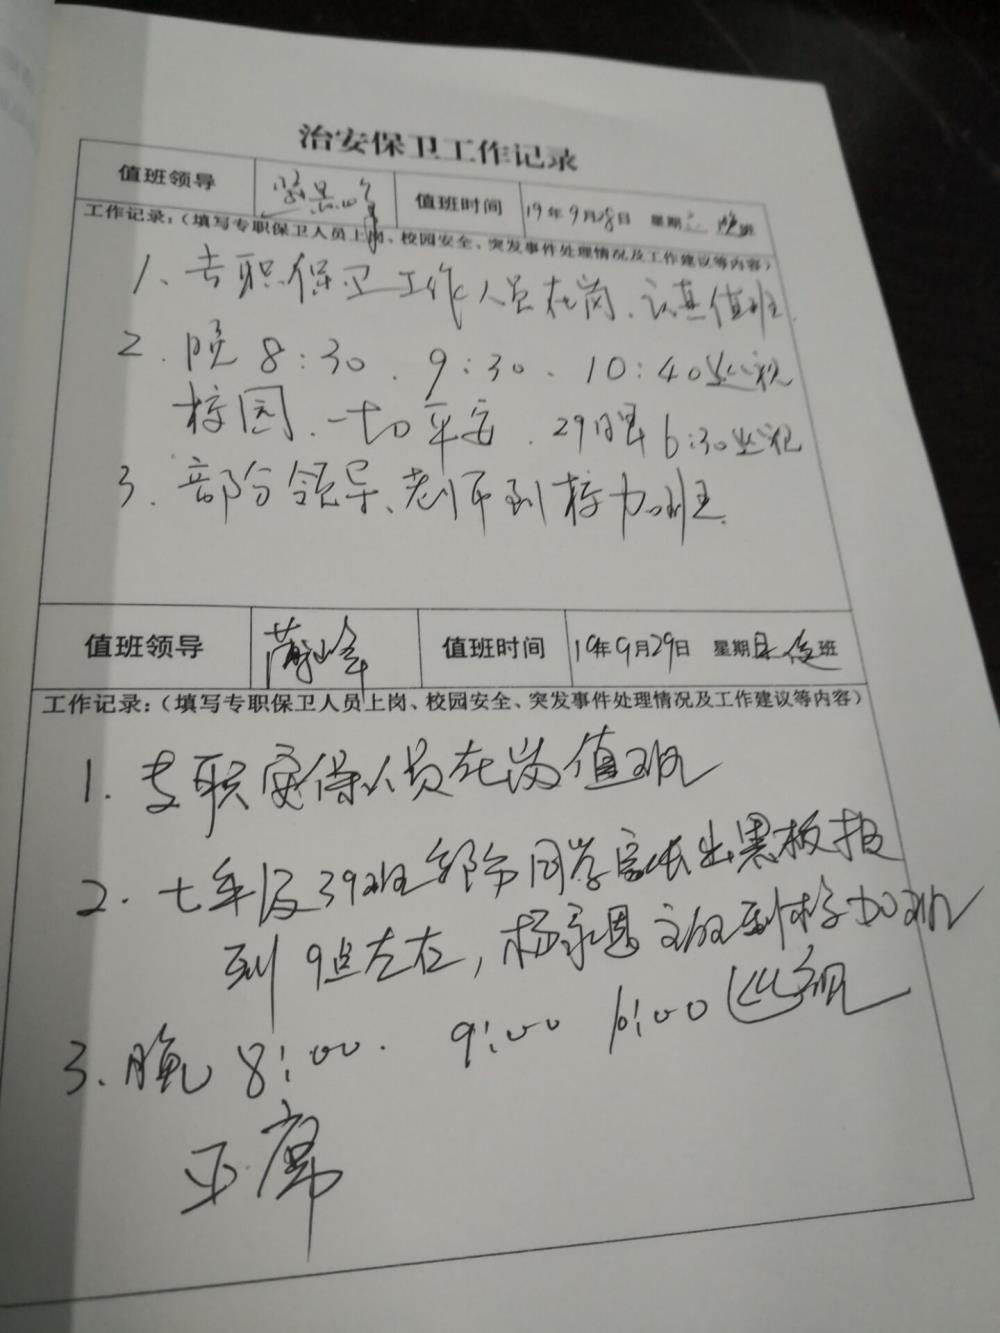 治安保卫工作记录
值班领导 值班时间 19年9月28日 星期 晚班
工作记录:(填写专职保卫人员上岗、校园安全、突发事件处理情况及工作建议等内容)
1、专职保卫工作人员在岗、认真值班
2.晚8:30.9:30.10:40巡视
校园.一切平安.29日早6:30巡视
3.部分领导、老师到校加班.
值班领导 值班时间 19年9月29日 星期日 班
工作记录:(填写专职保卫人员上岗、校园安全、突发事件处理情况及工作建议等内容)
1.专职安保人员在岗值班
2.七年级39班部分同学家长出黑板报
到9点左右,杨永恩 到校加班
3.晚8:00.9:00 10:00巡视